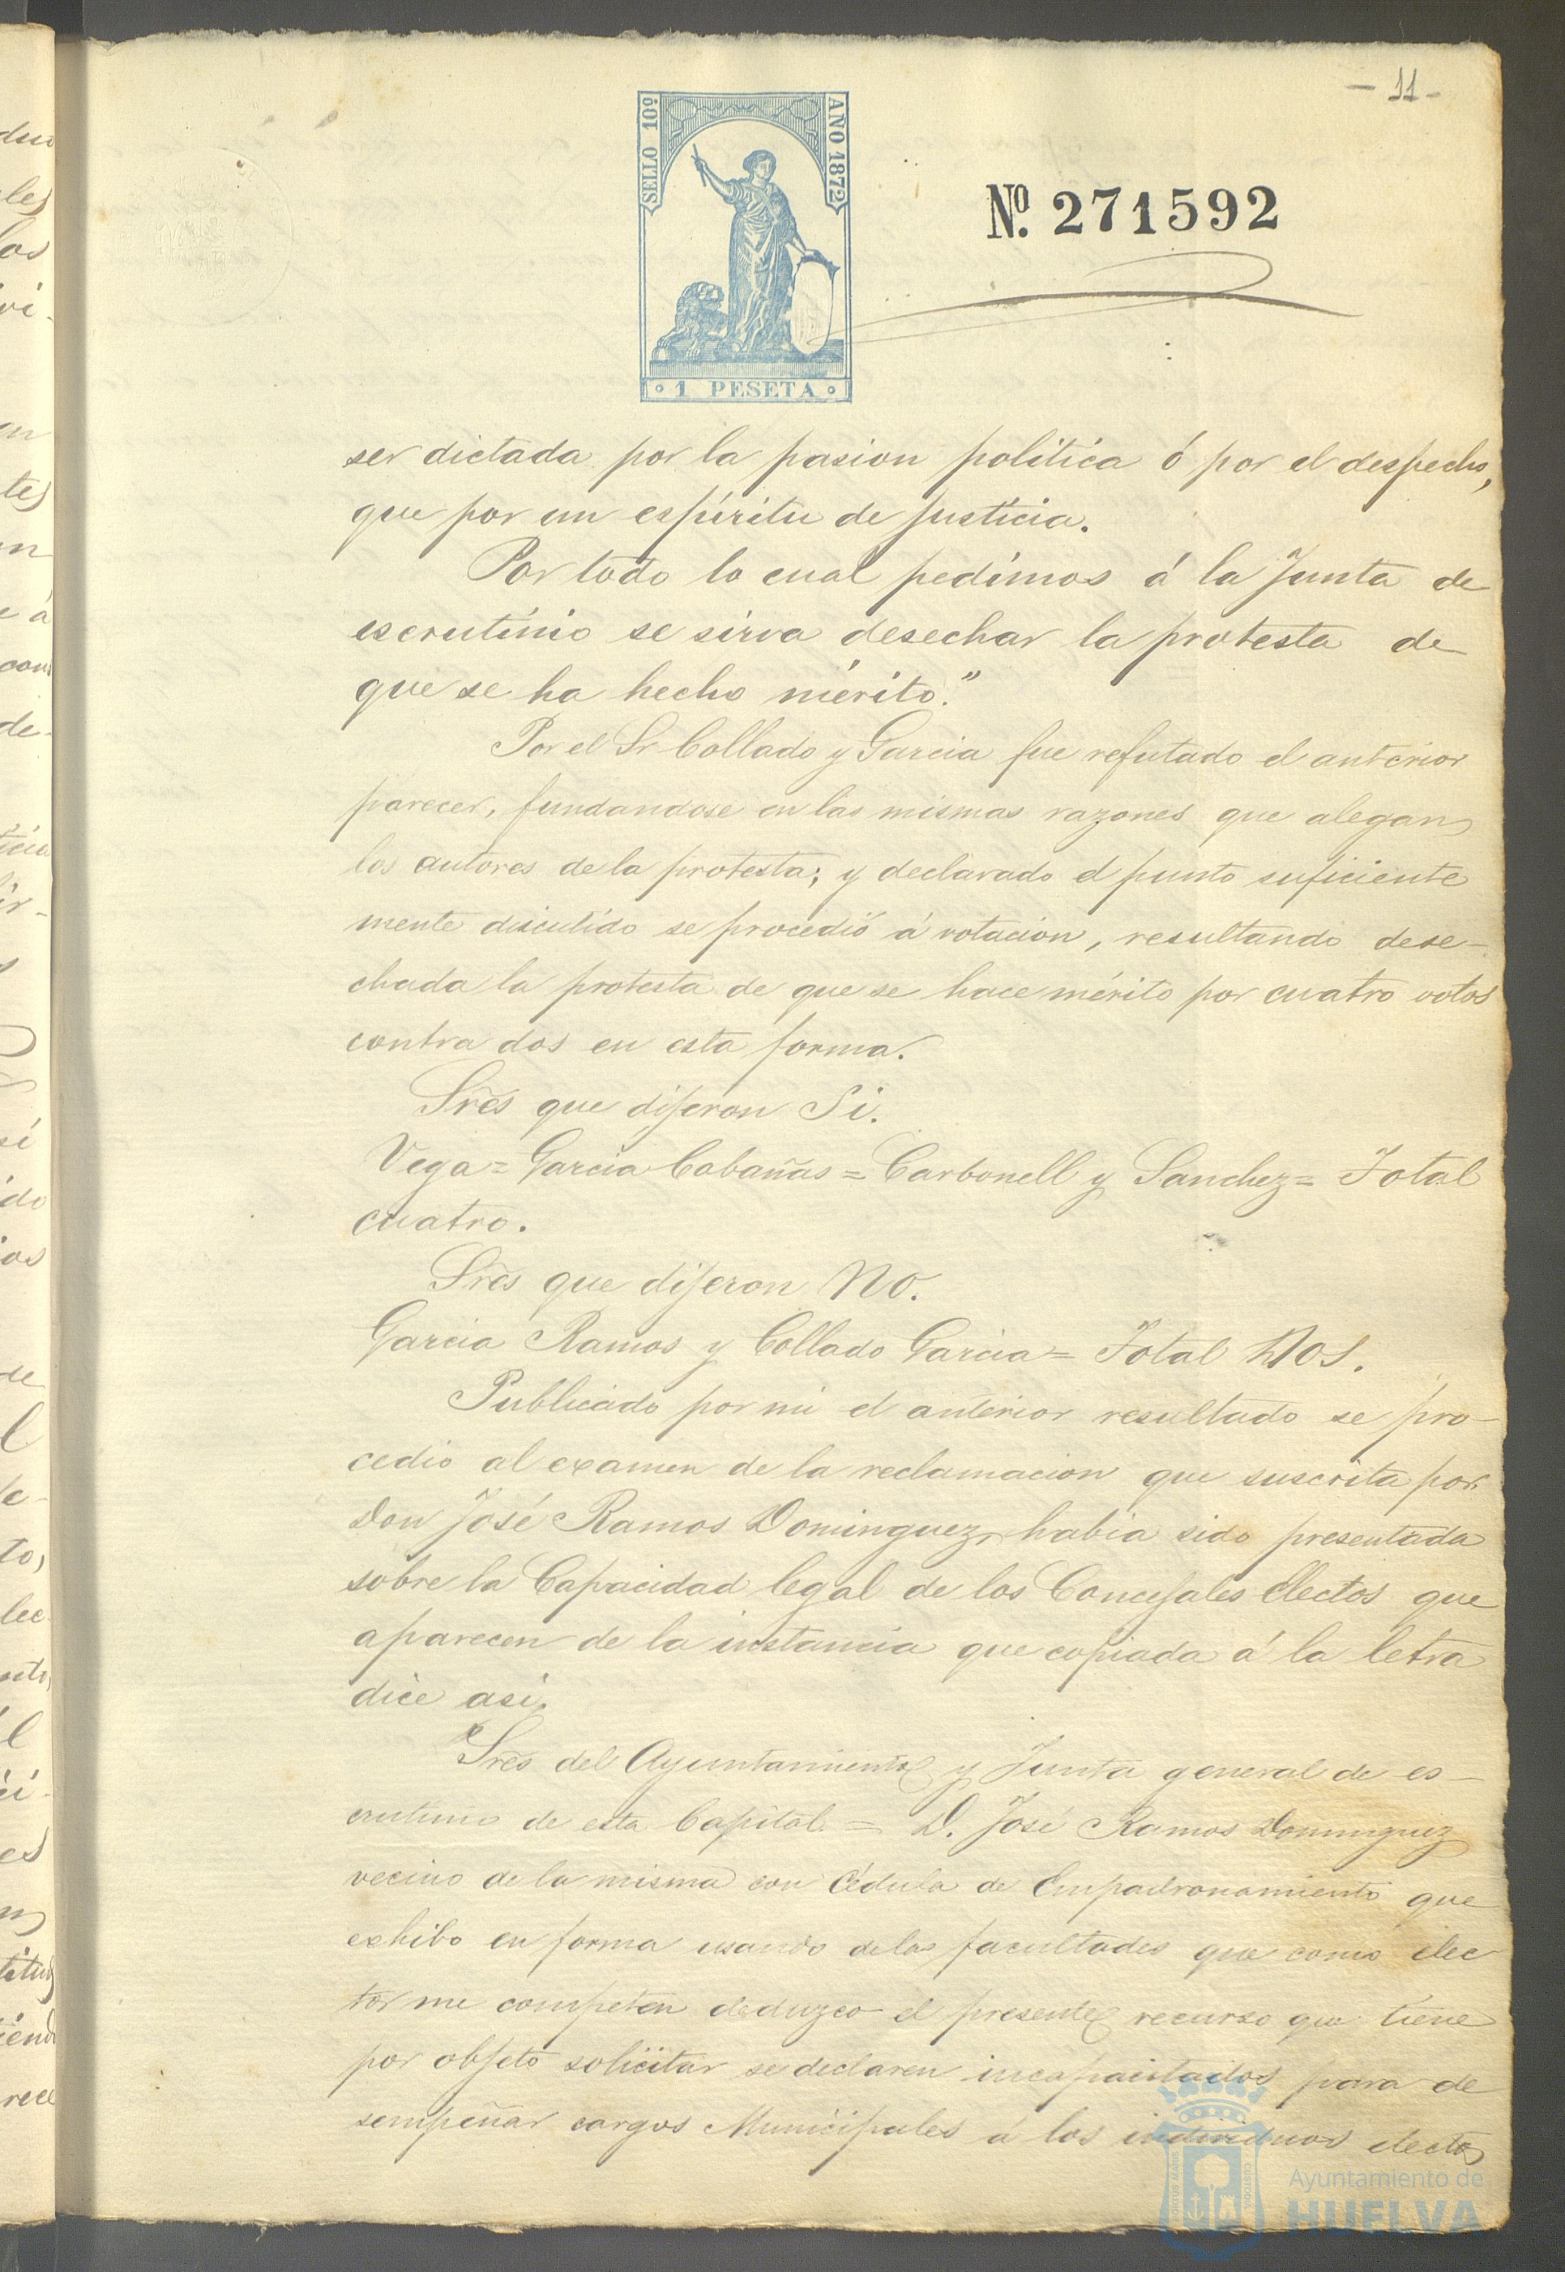 - 11 -
SELLO 10º
AÑO 1872
Nº. 271592
1 PESETA
ser dictada por la pasion politica ó por el despecho,
que por un espiritu de justicia.
Por todo lo cual pedimos á la Junta de
escrutinio se sirva desechar la protesta de
que se ha hecho mérito."
Por el Sr Collado y Garcia fue refutado el anterior
parecer, fundandose en las mismas razones que alegan
los autores de la protesta; y declarado el punto suficiente
mente discutido se procedió á votacion, resultando dese-
chada la protesta de que se hace mérito por cuatro votos
contra dos en esta forma.
Sres que dijeron Si.
Vega = Garcia Cabañas = Carbonell y Sanchez = Total
cuatro.
Sres que dijeron No.
Garcia Ramos y Collado Garcia = Total Dos.
Publicado por mi el anterior resultado se pro-
cedio al examen de la reclamacion que suscrita por
Don José Ramos Dominguez, habia sido presentada
sobre la Capacidad legal de los Concejales electos que
aparecen de la instancia que copiada á la letra
dice asi.
"Sres del Ayuntamiento y Junta general de es-
crutinio de esta Capital = D. José Ramos Dominguez
vecino de la misma con Cédula de Empadronamiento que
exhibo en forma usando de las facultades que como elec-
tor me competen deduzco el presente recurso que tiene
por objeto solicitar se declaren incapacitados para de
sempeñar cargos Municipales á los individuos electos
Ayuntamiento de
HUELVA